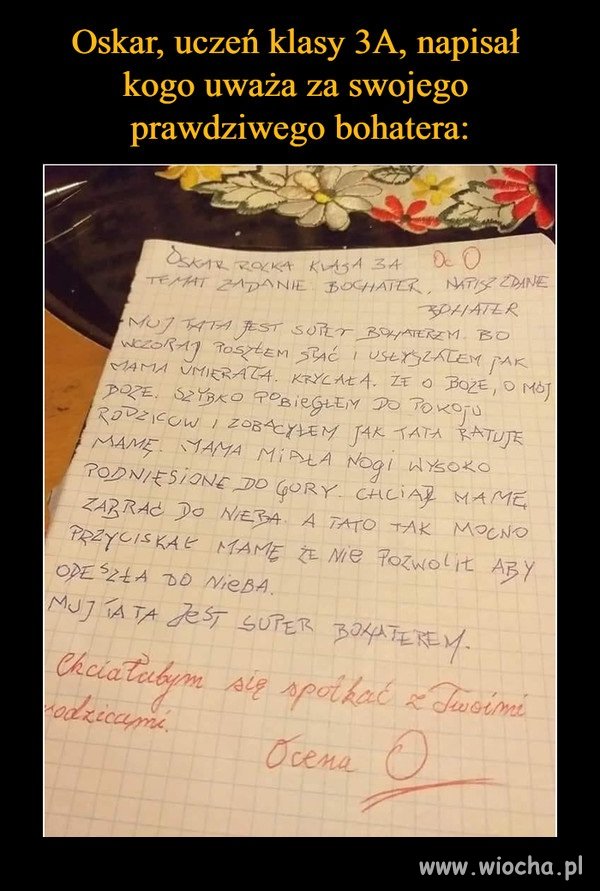 Oskar, uczeń klasy 3A, napisał
kogo uważa za swojego
prawdziwego bohatera:
OSKAR ROLKA KLASA 3A Oc O
TEMAT ZADANIE BOCHATER, NAPISZ ZDANIE
BOHATER
MUJ TATA JEST SUPER BOHATEREM. BO
WCZORAJ POSZŁEM SPAĆ I USŁYSZAŁEM JAK
MAMA UMIERAŁA. KRYCAŁA. ŻE O BOŻE, O MÓJ
BOŻE. SZYBKO POBIEGŁEM DO POKOJU
RODZICUW I ZOBACYŁEM JAK TATA RATUJE
MAMĘ. MAMA MIAŁA NOgi WYSOKO
PODNIESIONE DO GÓRY. CHCIAŁ MAMĘ
ZABRAĆ DO NIEBA. A TATO TAK MOCNO
PRZYCISKAŁ MAMĘ ŻE Nie POZWOLiŁ ABY
ODESZŁA DO NieBA.
MUJ TATA JeST SUPER BOHATEREM.
Chciałabym się spotkać z Twoimi
rodzicami.
Ocena O
www.wiocha.pl